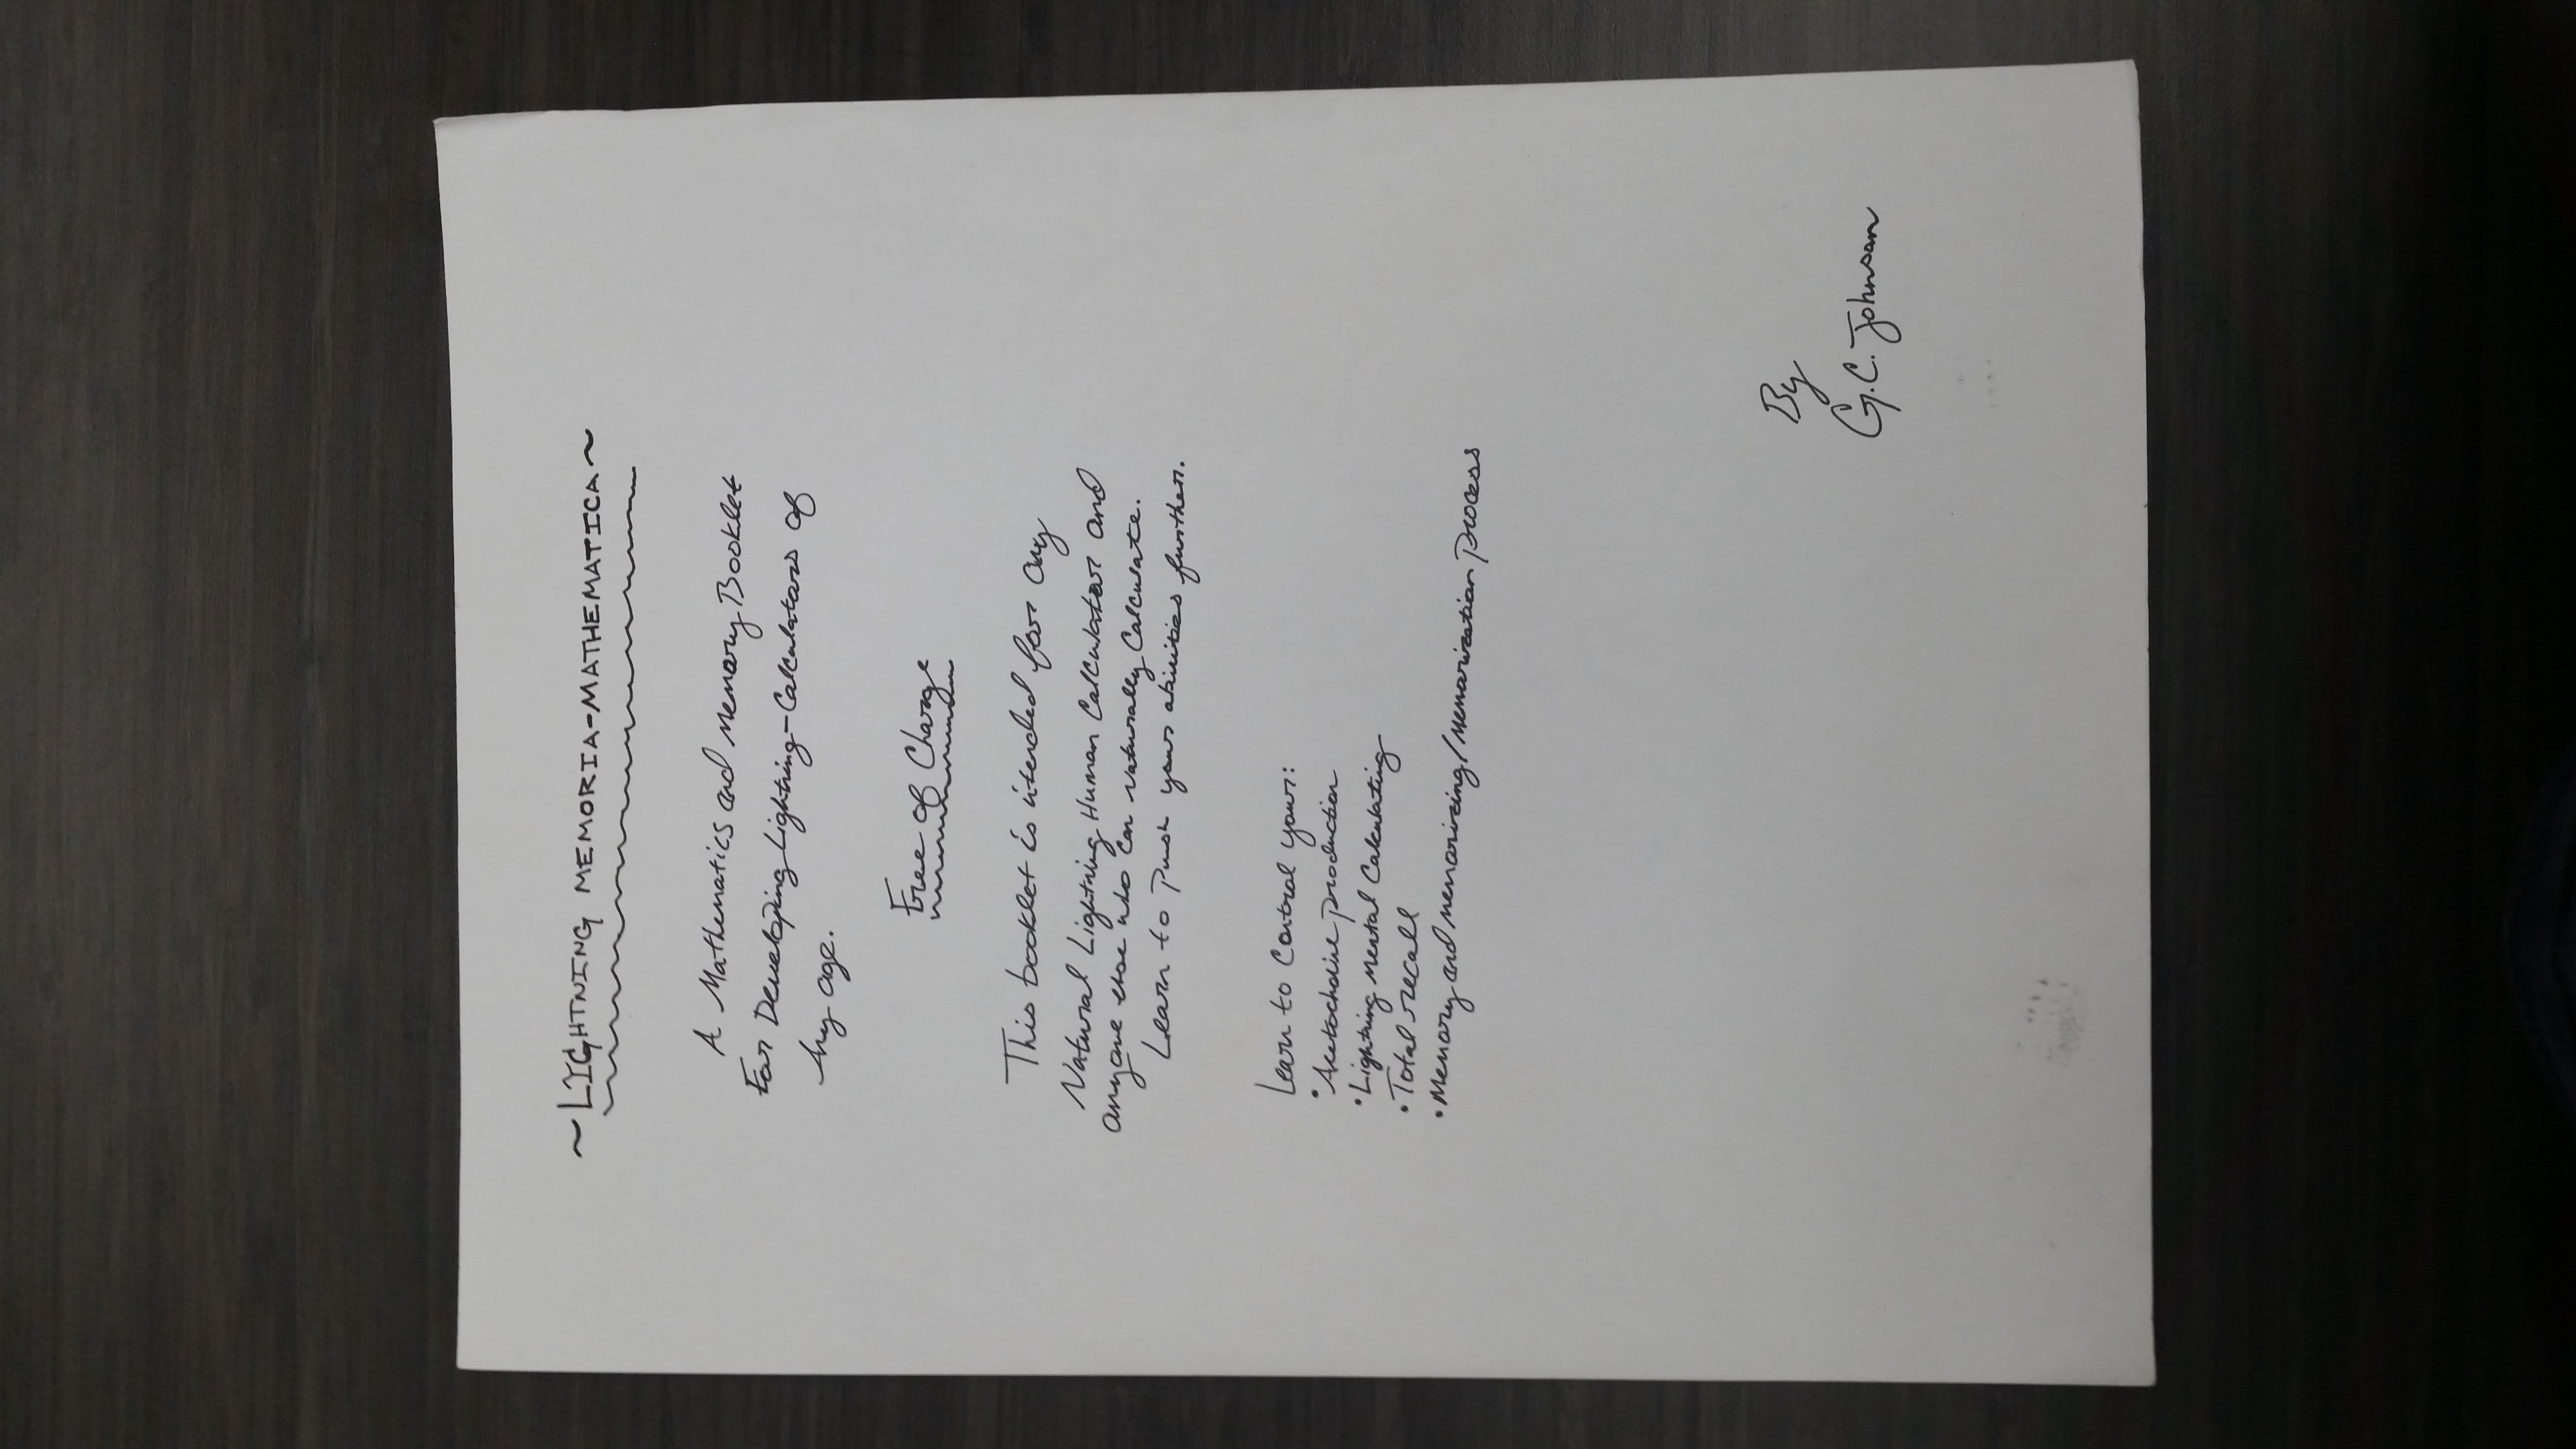 ~LIGHTNING MEMORIA-MATHEMATICA~
A Mathematics and Memory Booklet
For Developing Lightning-Calculators of
Any age.
Free of Charge
This booklet is intended for any
Natural Lightning Human Calculator and
anyone else who can naturally Calculate.
Learn to Push your abilities further.
Learn to Control your:
• production
• Lightning Mental Calculating
• Total recall
• Memory and memorizing/memorization Process
By
G.C. Johnson